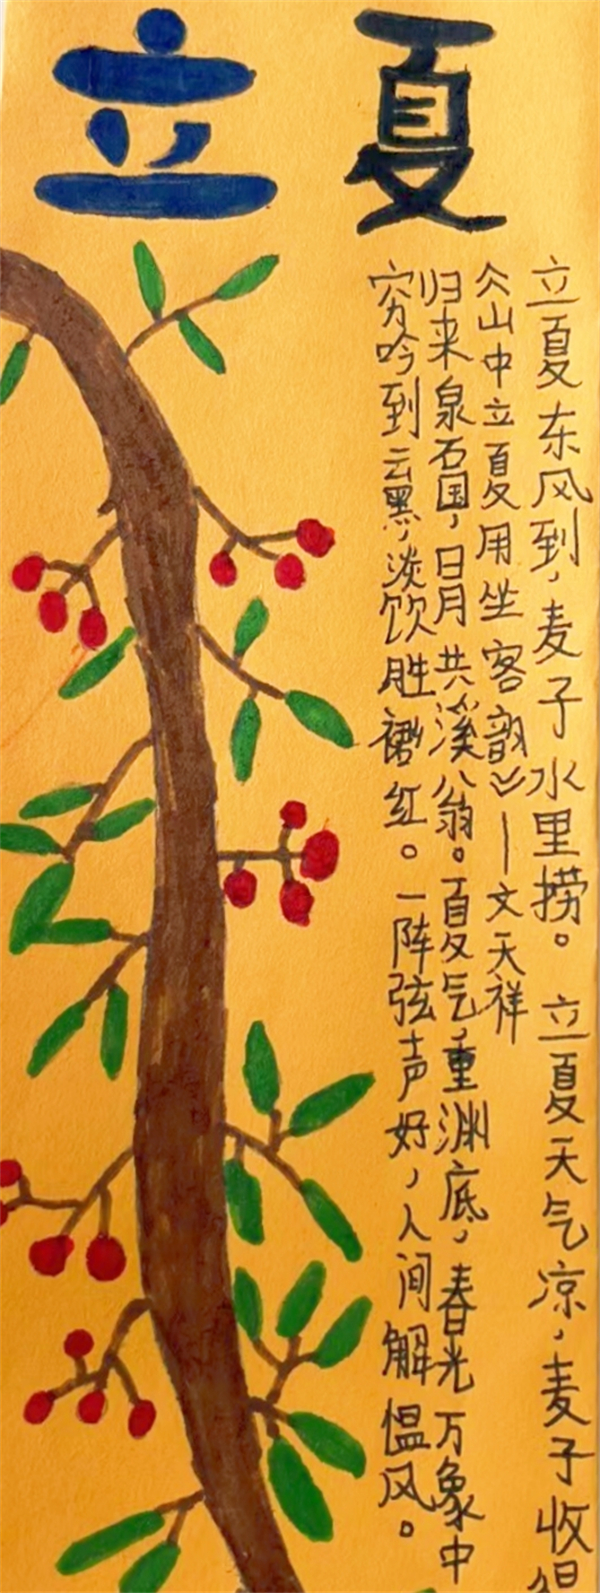 立夏
立夏东风到，麦子水里捞。立夏天气凉，麦子收
《山中立夏用坐客韵》—文天祥
归来泉石国，日月共溪翁。夏气重渊底，春光万象中
穷吟到云黑，淡饮胜裙红。一阵弦声好，人间解愠风。